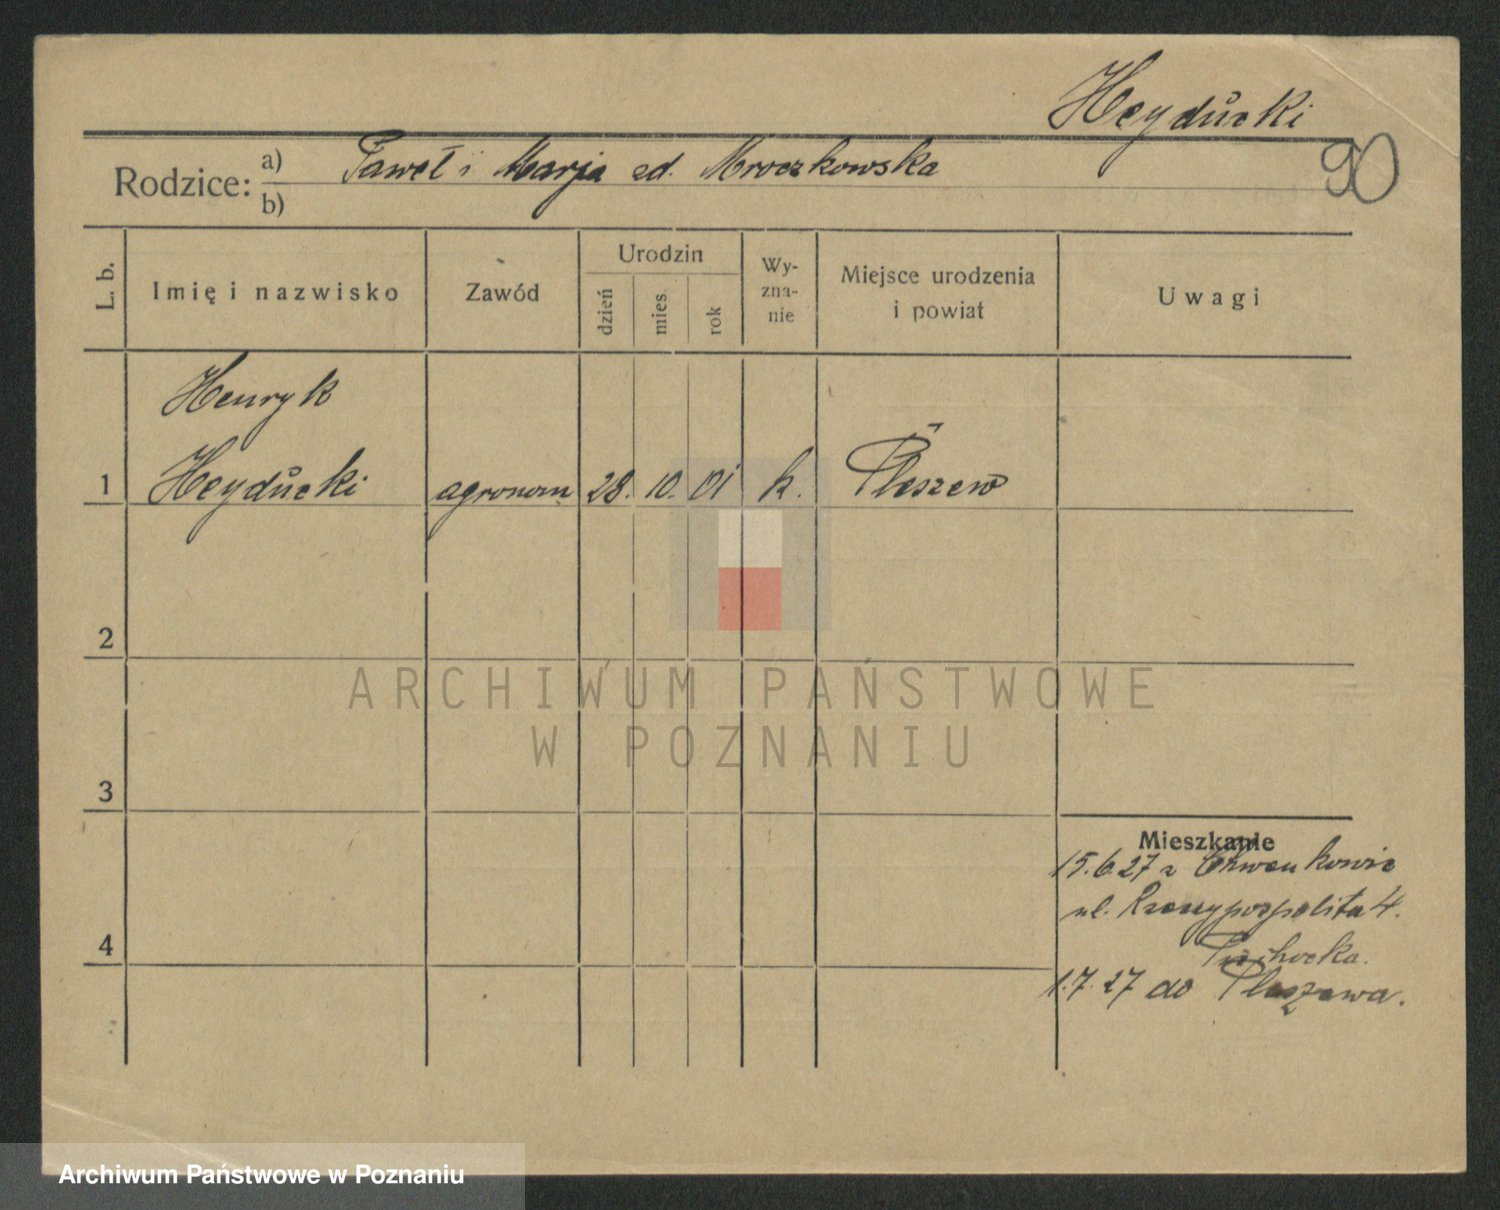 Heyducki
90
Rodzice: a) Paweł i Marja zd. Mroczkowska
b)
L. b.
Imię i nazwisko
Zawód
Urodzin
dzień
mies.
rok
Wy-
zna-
nie
Miejsce urodzenia
i powiat
Uwagi
Henryk
1 Heyducki agronom 28. 10. 01 k. Pleszew
2
3
4
Mieszkanie
15.6.27 z
ul. Rzeczypospolita 4.
1.7.27 do Pleszewa.
ARCHIWUM PAŃSTWOWE
W POZNANIU
Archiwum Państwowe w Poznaniu